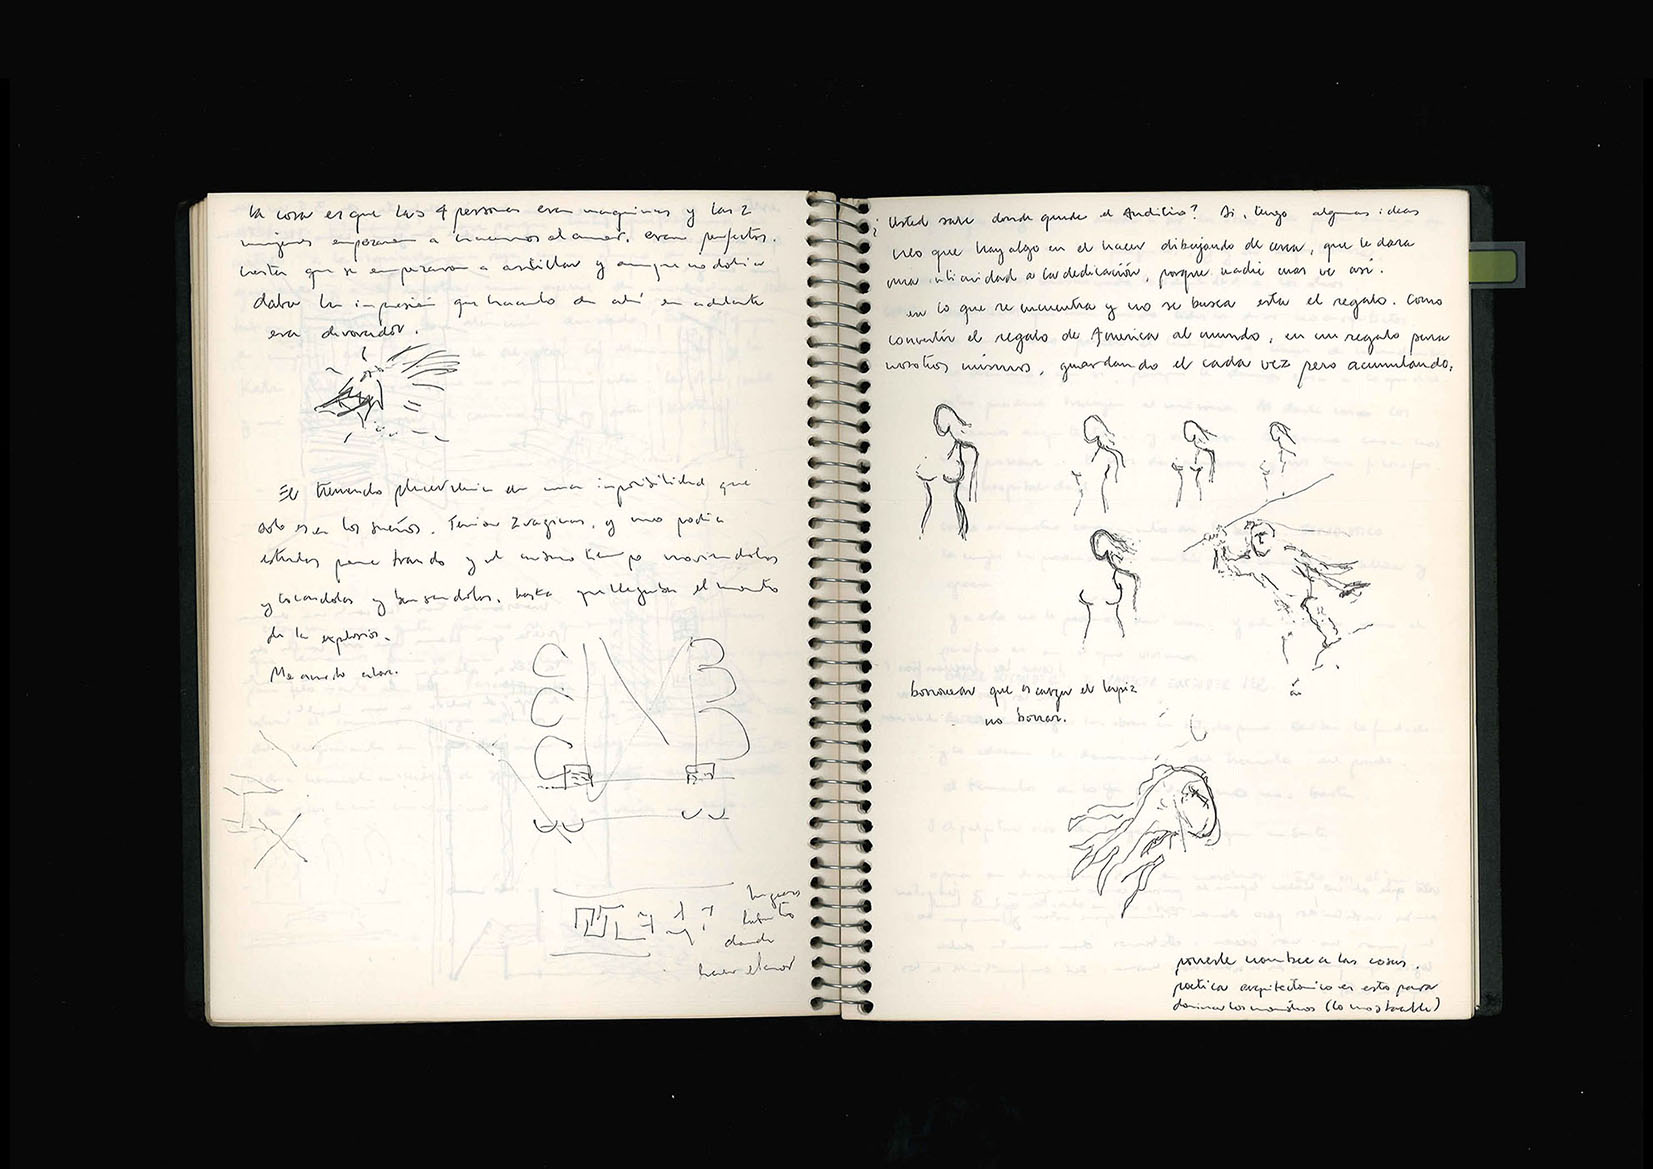 La cosa es que las 4 personas eran maquinas y las 2
mujeres empezaron a hacernos el amor. eran perfectas.
hasta que se empezaron a astillar y aunque no dolia
daba la impresión que haciendo de ahí en adelante
era divorador.
El tremendo de una imposibilidad que
solo es en los sueños. Tenian 2 vaginas, y uno podia
estarlas penetrando y al mismo tiempo
y tocandolas y besandolas. hasta que llegaba el momento
de la explosión.
Me
lugares
donde
hacer el amor
¿Usted sabe donde queda el Auditorio? Si, tengo algunas ideas
creo que hay algo en el hacer dibujando de cerca, que le dara
una a la dedicación, porque nadie mas ve así.
en lo que se encuentra y no se busca esta el regalo. Como
convertir el regalo de America al mundo, en un regalo para
nosotros mismos, guardando el cada vez pero acumulando.
borronear que es cargar el lapiz
no borrar.
ponerle nombre a las cosas.
poetica arquitectonica es esto para
dominar los monstruos (lo mostrable)